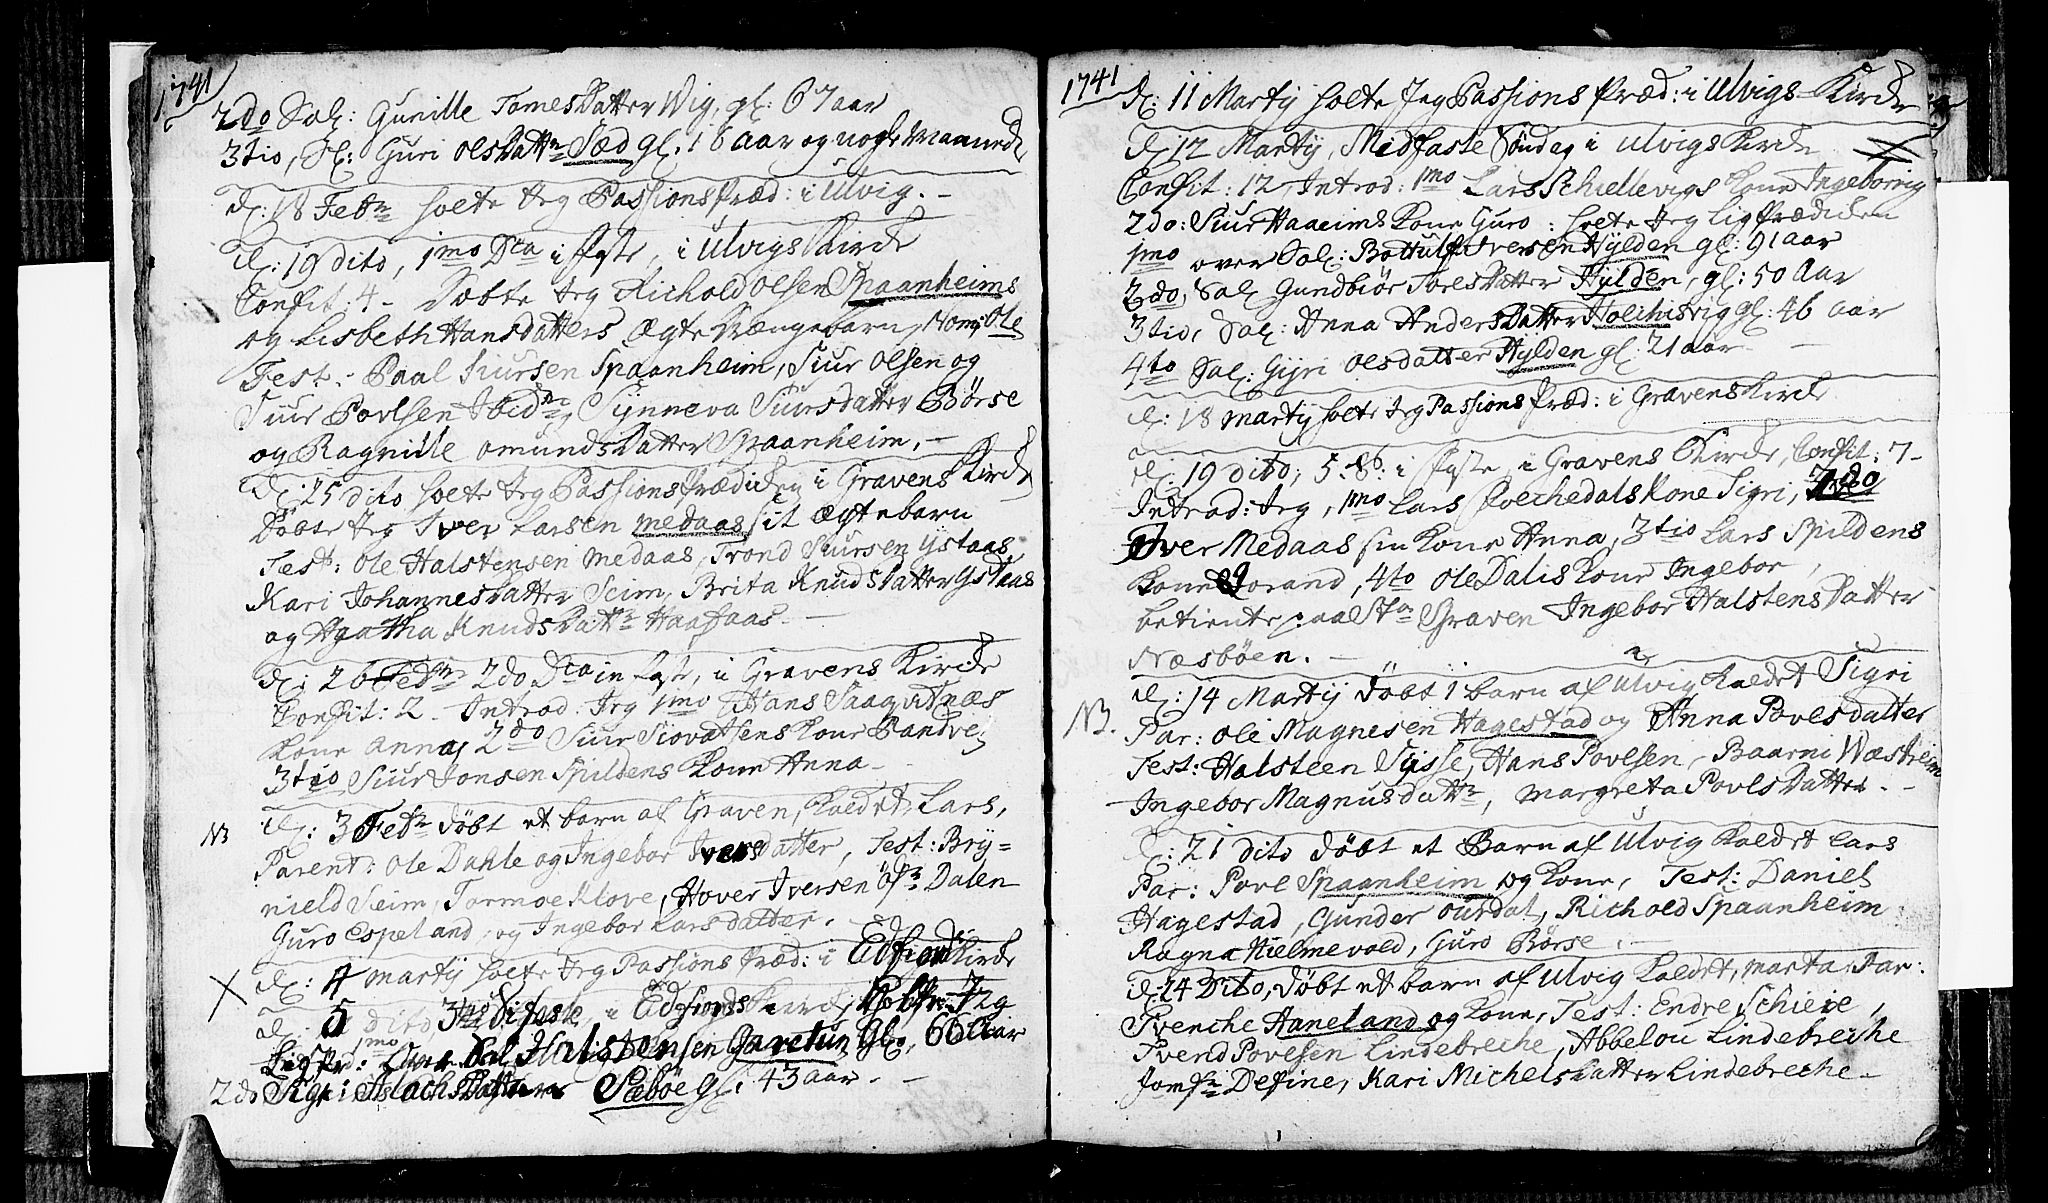 1741
2do Sal: Gunille TomesDatter Wig, gl: 67 aar
3tio, Sl: Guri olsDattr Sæd gl. 18 aar og nogle Maaneder
d: 18 Febr holte Jeg PassionsPræd: i Ulvig. -
d: 19 dito, 1mo Dca i faste, i Ulvigs Kircke
Confit: 4 - Døbte Jeg Richold olsen Spaanheims
og Lisbeth Hansdatters Ægte barn, Nom: Ole
Test: Paal Siursen Spaanheim, Siur olsen og
Siur Povlsen Ibidm Synneva Siursdatter Børse
og Ragnille omundsDatter Spaanheim. -
d: 25 dito holte Jeg PassionsPrædicken i Gravens Kircke
Døbte Jeg Iver Larsen medaas sit ægte barn
Test: ole Halstensen medaas, Trond Siursen ystaas,
Kari JohannesDatter Seim, Brita KnudsDatter Ystaas
og Agatha KnudsDattr Haasaas. -
d: 26 Febr 2do Dca in faste, i Gravens Kircke
Confit: 2 - Introd: Jeg 1mo Hans Saaqvitnæs
Kone Anna, 2do Siur Siovatsens kone Randve,
3tio Siur Jonsen Spildens Kone Anna -
NB d: 3 Febr døbt et barn af Graven, kaldet Lars,
Parent: ole Dahle og Ingebor Iversdatter, Test: Bry=
nield Seim, Tormoe Kløve, Hover Iversen öfr Dalen
Guro Espeland, og Ingebor Larsdatter.
d: 4 martij holte Jeg PassionsPræd: i Edfiord Kircke
d: 5 dito 3tia Di faste, i Edfiords Kircke,
LigPrd: 1mo Halstensen Garetun Gl: 66 Aar
2do AslachsDatter Sæbøe gl: 43 aar. -
1741
d: 11 Martij holte Jeg PassionsPræd: i Ulvigs Kircke
d: 12 Martij, Midfaste Søndag i Ulvigs Kircke
Confit: 12 Introd: 1mo Lars Schiellevigs Kone Ingeborrig
2do: Siur Haaeims Kone Guro: holte Jeg LigPrædicken
1mo over Sal: Bottulf Iversen Hylden gl: 91 aar
2do, Sal Gundbiør ToresDatter Hylden, gl: 50 Aar
3tio, Sal: Anna AndersDatter Holchisvig gl: 46 aar
4to Sal: Gyri olsdatter Hylden gl. 21 aar -
d: 18 martij holte Jeg PassionsPræd: i Gravens Kircke
d: 19 dito, 5. S: i faste, i Gravens Kircke, Confit: 7 -
Introd: Jeg, 1mo Lars Qvechedals Kone Sigri, 2do
Iver Medaas sin kone Anna, 3tio Lars Spildens
Kone Jorand, 4to Ole Dalis kone Ingebor,
betiente paa Stn Graven Ingebor HalstensDatter
Næsbøen. -
NB. d: 14 Martij døbt 1 barn af Ulvig kaldet Sigri
Par: ole Magnesen Hagestad og Anna Povelsdatter
Test: Halsteen Sysse, Hans Povelsen, Baarni Wæstreim
Ingebor Magnusdattr, margreta PovlsDatter. -
d: 21 dito døbt et Barn af Ulvig Kaldet Lars
Par: Povl Spaanheim og kone, Test: Daniel
Hagestad, Gunder ourdal, Richold Spaanheim
Ragna Hielmevold, Guro Børse. -
d: 24 Dito, døbt et barn af Ulvig Kaldet, marta. Par:
Svenche Haneland og kone, Test: Endre Schieie,
Svend Povelsen Lindebreche, Abbelou Lindebreche
Jomfr Define, Kari MichelsDatter Lindebreche -